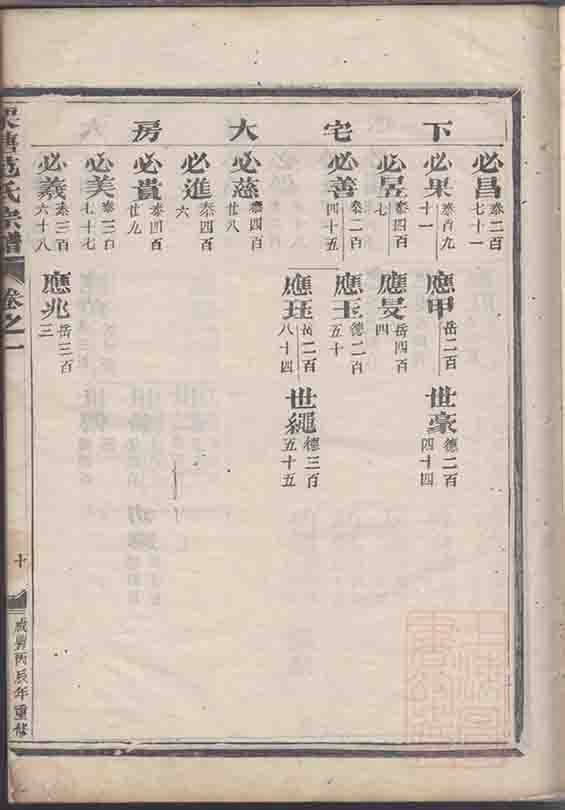 下宅大房六
必昌 泰二百七十一
必果 泰百九十一
應甲 岳二百
世豪 德二百四十四
必昱 泰四百七
應旻 岳四百四
必善 泰二百四十五
應玉 德二百五十
應珏 岳二百八十四
世繩 德三百五十五
必慈 泰四百廿八
必進 泰四百六
必貴 泰四百廿九
必美 泰二百七十七
必義 泰三百六十八
應兆 岳三百三
范氏宗譜
卷之一
十
咸豐丙辰年重修